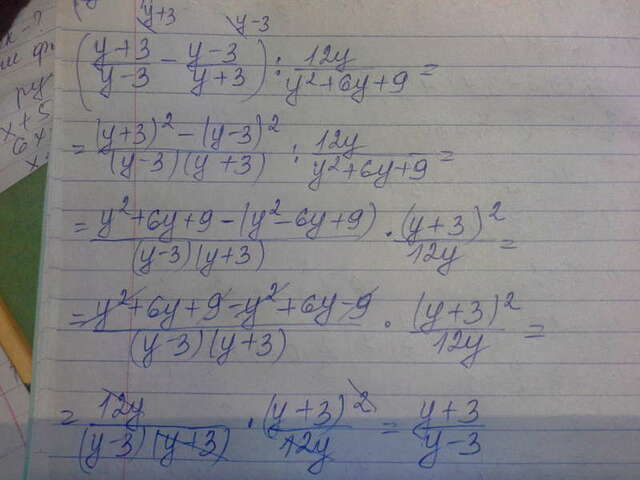 y+3 y-3
(y+3/y-3 - y-3/y+3) : 12y/y²+6y+9 =
= (y+3)²-(y-3)²/(y-3)(y+3) : 12y/y²+6y+9 =
= y²+6y+9-(y²-6y+9)/(y-3)(y+3) · (y+3)²/12y =
= y²+6y+9-y²+6y-9/(y-3)(y+3) · (y+3)²/12y =
= 12y/(y-3)(y+3) · (y+3)²/12y = y+3/y-3